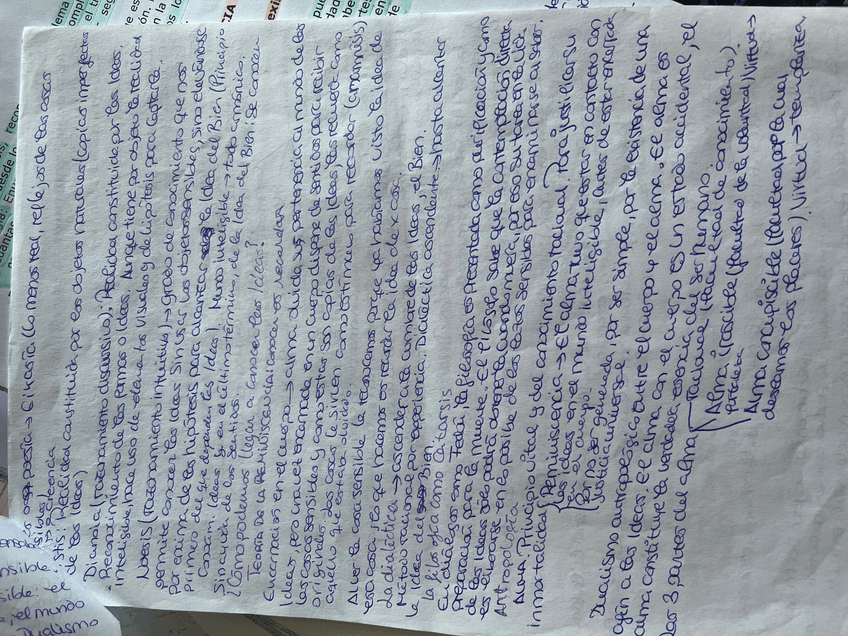 Eikasía (lo menos real, reflejos de las cosas
Pistis: Realidad constituida por los objetos naturales (copias imperfectas
de las Ideas)
Dianoia (razonamiento discursivo): Realidad constituida por las Ideas,
Reconocimiento de las formas o Ideas. Aunque tiene por objeto la realidad
inteligible, hace uso de elementos visuales y de hipótesis para captarla.
Noesis (razonamiento intuitivo) → grado de conocimiento que nos
permite conocer las Ideas sin usar los objetos sensibles, sino elevándose
por encima de las hipótesis para alcanzar la Idea del Bien (Principio
primero del que dependen las Ideas). Mundo inteligible → todo armónico.
¿Cómo podemos llegar a conocer las Ideas?
TEORÍA DE LA REMINISCENCIA: conocer es recordar
Encarnación en el cuerpo → alma olvida su pertenencia al mundo de las
Ideas, pero una vez encarnada en un cuerpo dispone de sentidos para recibir
las cosas sensibles y como estas son copias de las Ideas, las recuerda como
originales. Las cosas le sirven como estímulo para recordar (anamnesis)
aquello que estaba olvidado.
Al ver la cosa sensible la reconocemos porque ya habíamos visto la idea de
esa cosa, y lo que hacemos es recordar la idea de "x" cosa.
La dialéctica → ascender a la cumbre de las Ideas, el Bien.
Método racional por experiencia. Dialéctica ascendente → hasta alcanzar
la idea del Bien
La filosofía como catarsis
En diálogos como Fedón, la filosofía es presentada como purificación y como
preparación para la muerte. El filósofo sabe que la contemplación directa
de las Ideas solo podrá obtenerla cuando muera, por eso su tarea en la vida
es liberarse en lo posible de los lazos sensibles para encaminarse al saber.
Antropología
ALMA: Principio vital y del conocimiento racional. Para justificar su
inmortalidad Reminiscencia → El alma tuvo que estar en contacto con
las Ideas en el mundo inteligible, antes de estar encarnada
en el cuerpo.
Ser no ser generada, por ser simple, por la existencia de una
justicia universal.
Dualismo antropológico entre el cuerpo y el alma. El alma es
afín a las Ideas. El alma con el cuerpo es un estado accidental, el
alma constituye la verdadera esencia del ser humano.
Las 3 partes del alma Racional (facultad de conocimiento)
Alma irascible (facultad de la voluntad) Virtud →
fortaleza
Alma concupiscible (facultad por la cual
deseamos los placeres) Virtud → templanza
sensible: el
el mundo
Dualismo